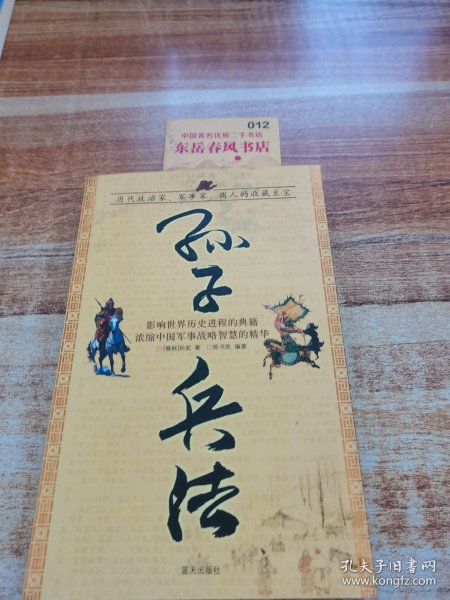 012
中国著名优质二手书店
东岳春风书店
历代政治家、军事家、商人的收藏至宝
孙子
影响世界历史进程的典籍
浓缩中国军事战略智慧的精华
□[春秋]孙武 著 □陈书凯 编著
兵法
蓝天出版社
孔夫子旧书网
www.kongfz.com